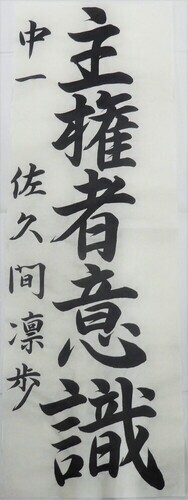 主権者意識
中一 佐久間凛歩